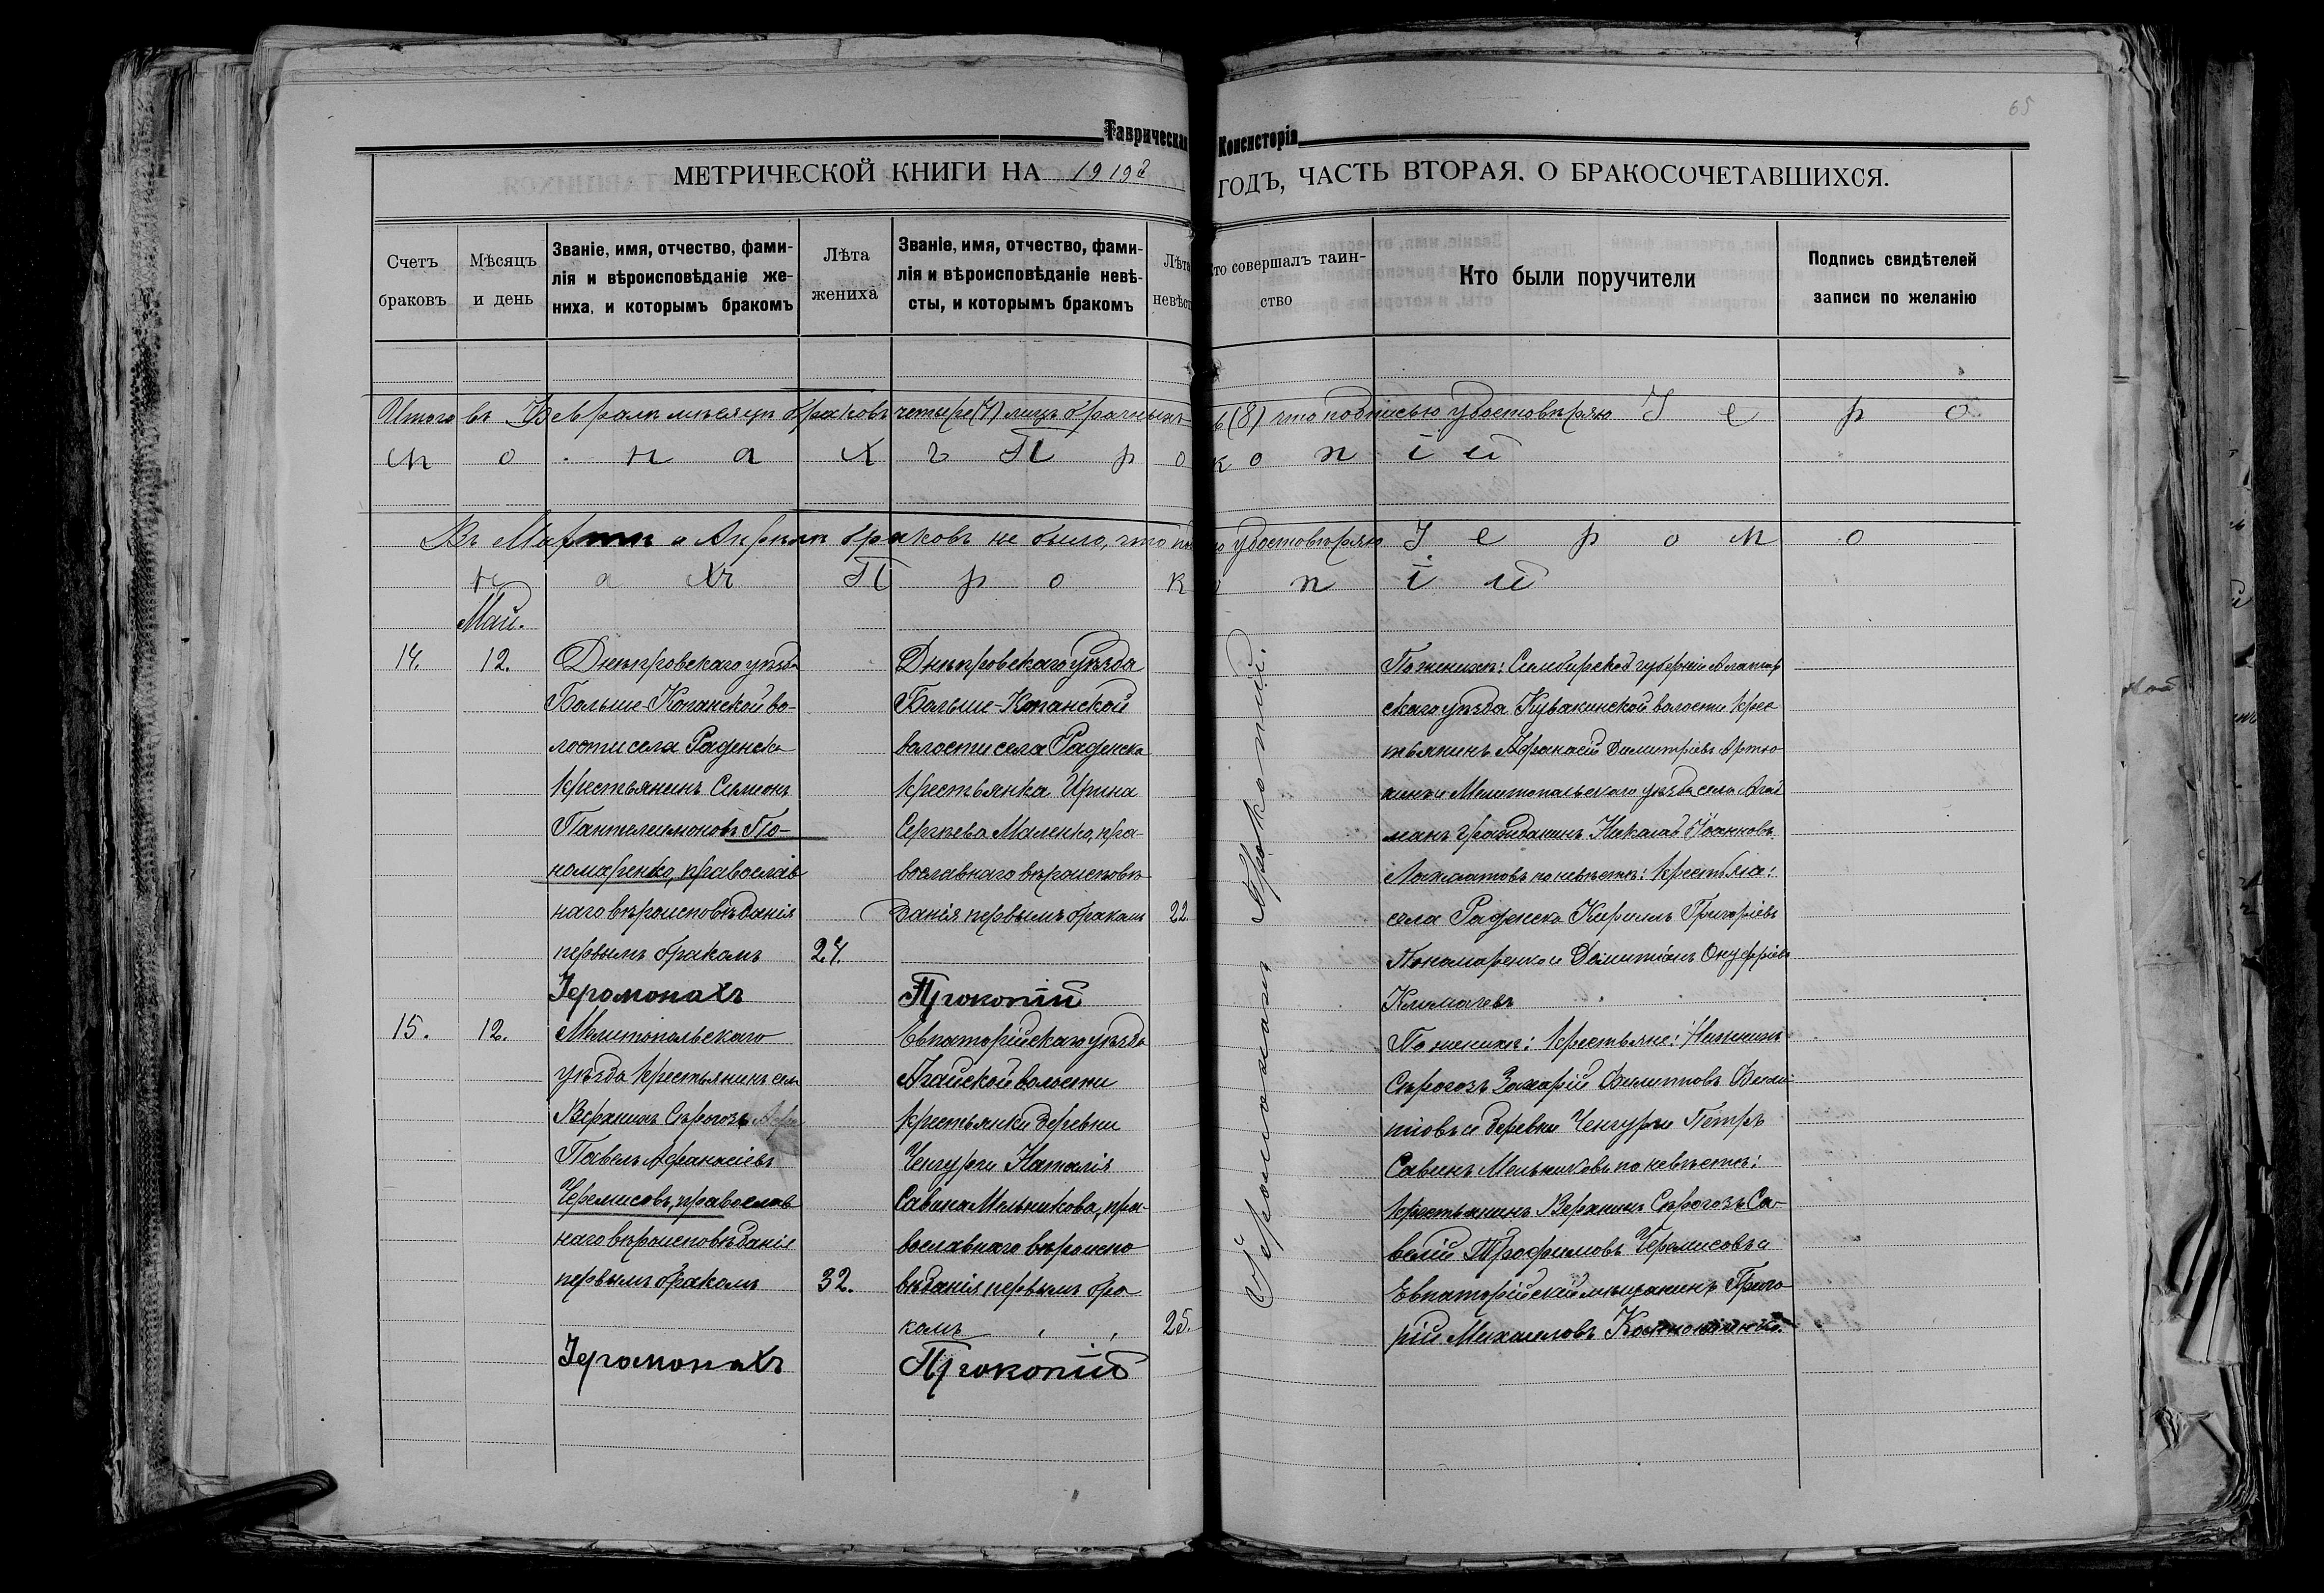 65
Таврическая Консисторія
МЕТРИЧЕСКОЙ КНИГИ НА 1919 ГОДЪ, ЧАСТЬ ВТОРАЯ. О БРАКОСОЧЕТАВШИХСЯ.
Счетъ браковъ
Мѣсяцъ и день
Званіе, имя, отчество, фами-
лія и вѣроисповѣданіе же-
ниха, и которымъ бракомъ
Лѣта
жениха
Званіе, имя, отчество, фами-
лія и вѣроисповѣданіе невѣ-
сты, и которымъ бракомъ
Лѣта
невѣст
Кто совершалъ таин-
ство
Кто были поручители
Подпись свидѣтелей
записи по желанію
Итого въ Февралѣ мѣсяцѣ браковъ четыре (4) лицъ брачныхъ (8) что подписью удостовѣряю Іеро
монахъ Прокопій
Въ Мартѣ и Апрѣлѣ браковъ не было, что удостовѣряю Іеромо
нахъ Прокопій
Май.
14.
12.
Днѣпровскаго уѣзда
Больше-Копанской во-
лости села Раденска
крестьянинъ Симеонъ
Пантелеимоновъ По-
номаренко, православ
наго вѣроисповѣданія
первымъ бракомъ
24.
Іеромонахъ
Днѣпровскаго уѣзда
Больше-Копанской
волости села Раденска
крестьянка Ирина
Сергѣева Маленко, пра-
вославнаго вѣроисповѣ
данія первымъ бракомъ
22.
Прокопій
Іеромонахъ Прокопій.
По женихѣ: Симбирской губерніи Алатыр
скаго уѣзда Кувакинской волости крес
тьянинъ Афанасій Димитріевъ Артю
кинъ и Мелитопольскаго уѣзда села Агай
манъ гражданинъ Николай Іоанновъ
по невѣстѣ: крестьяне:
села Раденска Кириллъ Григоріевъ
Пономаренко и Онуфріевъ
Климачевъ
15.
12.
Мелитопольскаго
уѣзда крестьянинъ села
Верхнихъ Сѣрогозъ
Павелъ Афанасіевъ
Черемисовъ, православ
наго вѣроисповѣданія
первымъ бракомъ
32.
Іеромонахъ
Евпаторійскаго уѣзда
Агайской волости
крестьянка деревни
Ченгурчи Наталія
Савина Мельникова, пра-
вославнаго вѣроиспо
вѣданія первымъ бра
комъ
25.
Прокопій
По женихѣ: крестьяне: Нижнихъ
Сѣрогозъ Захарій Филипповъ
и деревни Ченгурчи Петръ
Савинъ Мельниковъ по невѣстѣ:
крестьянинъ Верхнихъ Сѣрогозъ Са-
велій Трофимовъ Черемисовъ и
Евпаторійскій мѣщанинъ Григо
рій Михаиловъ